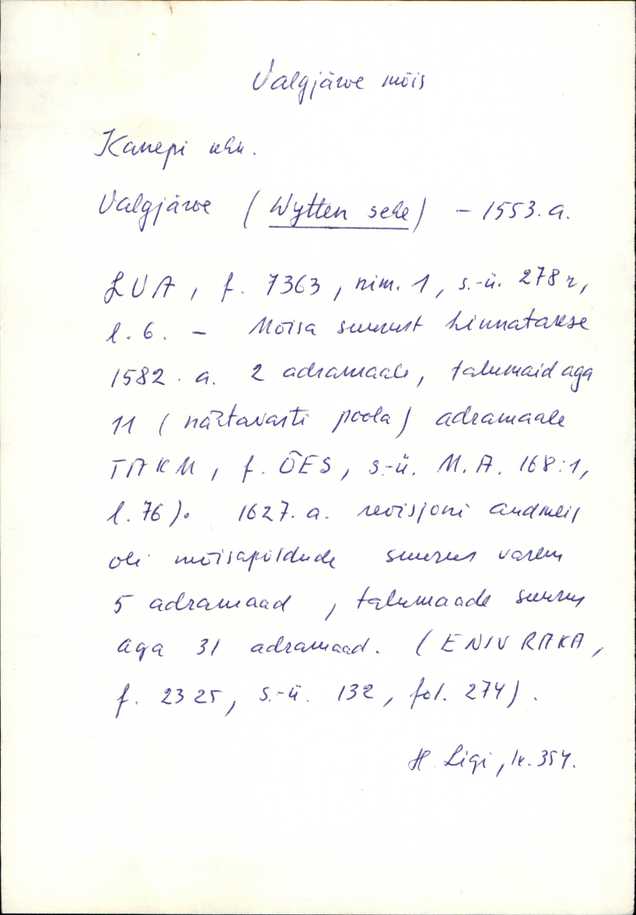 Valgjärve mõis
Kanepi khk.
Valgjärve (Wytten sehe) – 1553. a.
LUA, f. 7363, nim. 1, s.-ü. 278 r,
l. 6. – Mõisa suurust hinnatakse
1582. a. 2 adramaale, talumaid aga
11 (nähtavasti poola) adramaale
TAKM, f. ÕES, s.-ü. M.A. 168:1,
l. 76). 1627. a. revisjoni andmeil
oli mõisapõldude suurus varem
5 adramaad, talumaade suurus
aga 31 adramaad. (ENSV RAKA,
f. 2325, s.-ü. 132, fol. 274).
H. Ligi, lk. 354.